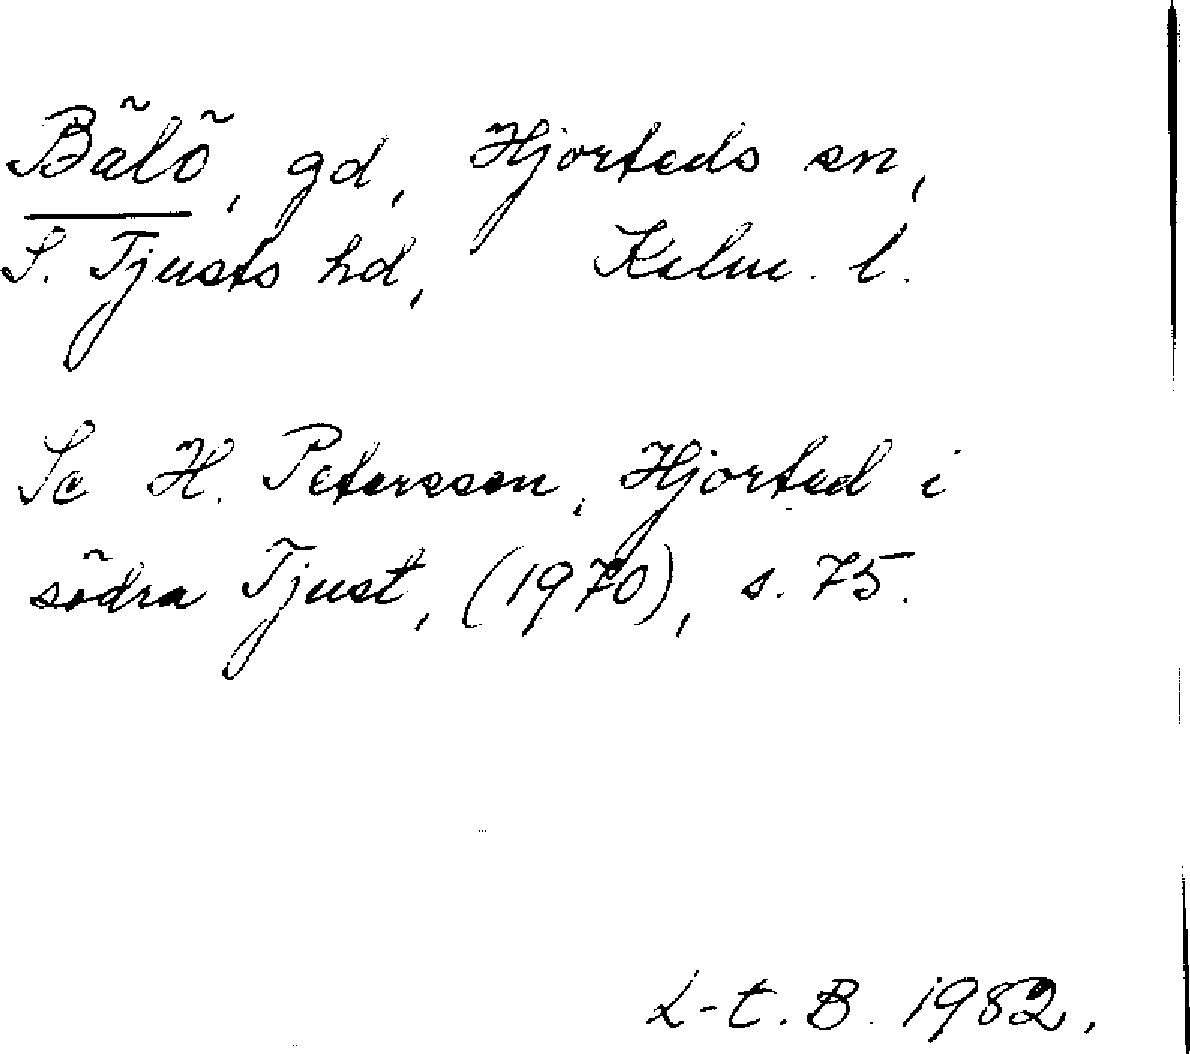 Bälö, gd, Hjorteds sn,
S. Tjusts hd, Kalm. l.
Se H. Petersson, Hjorted i
södra Tjust, (1970), s. 75.
L-t. B. 1982.